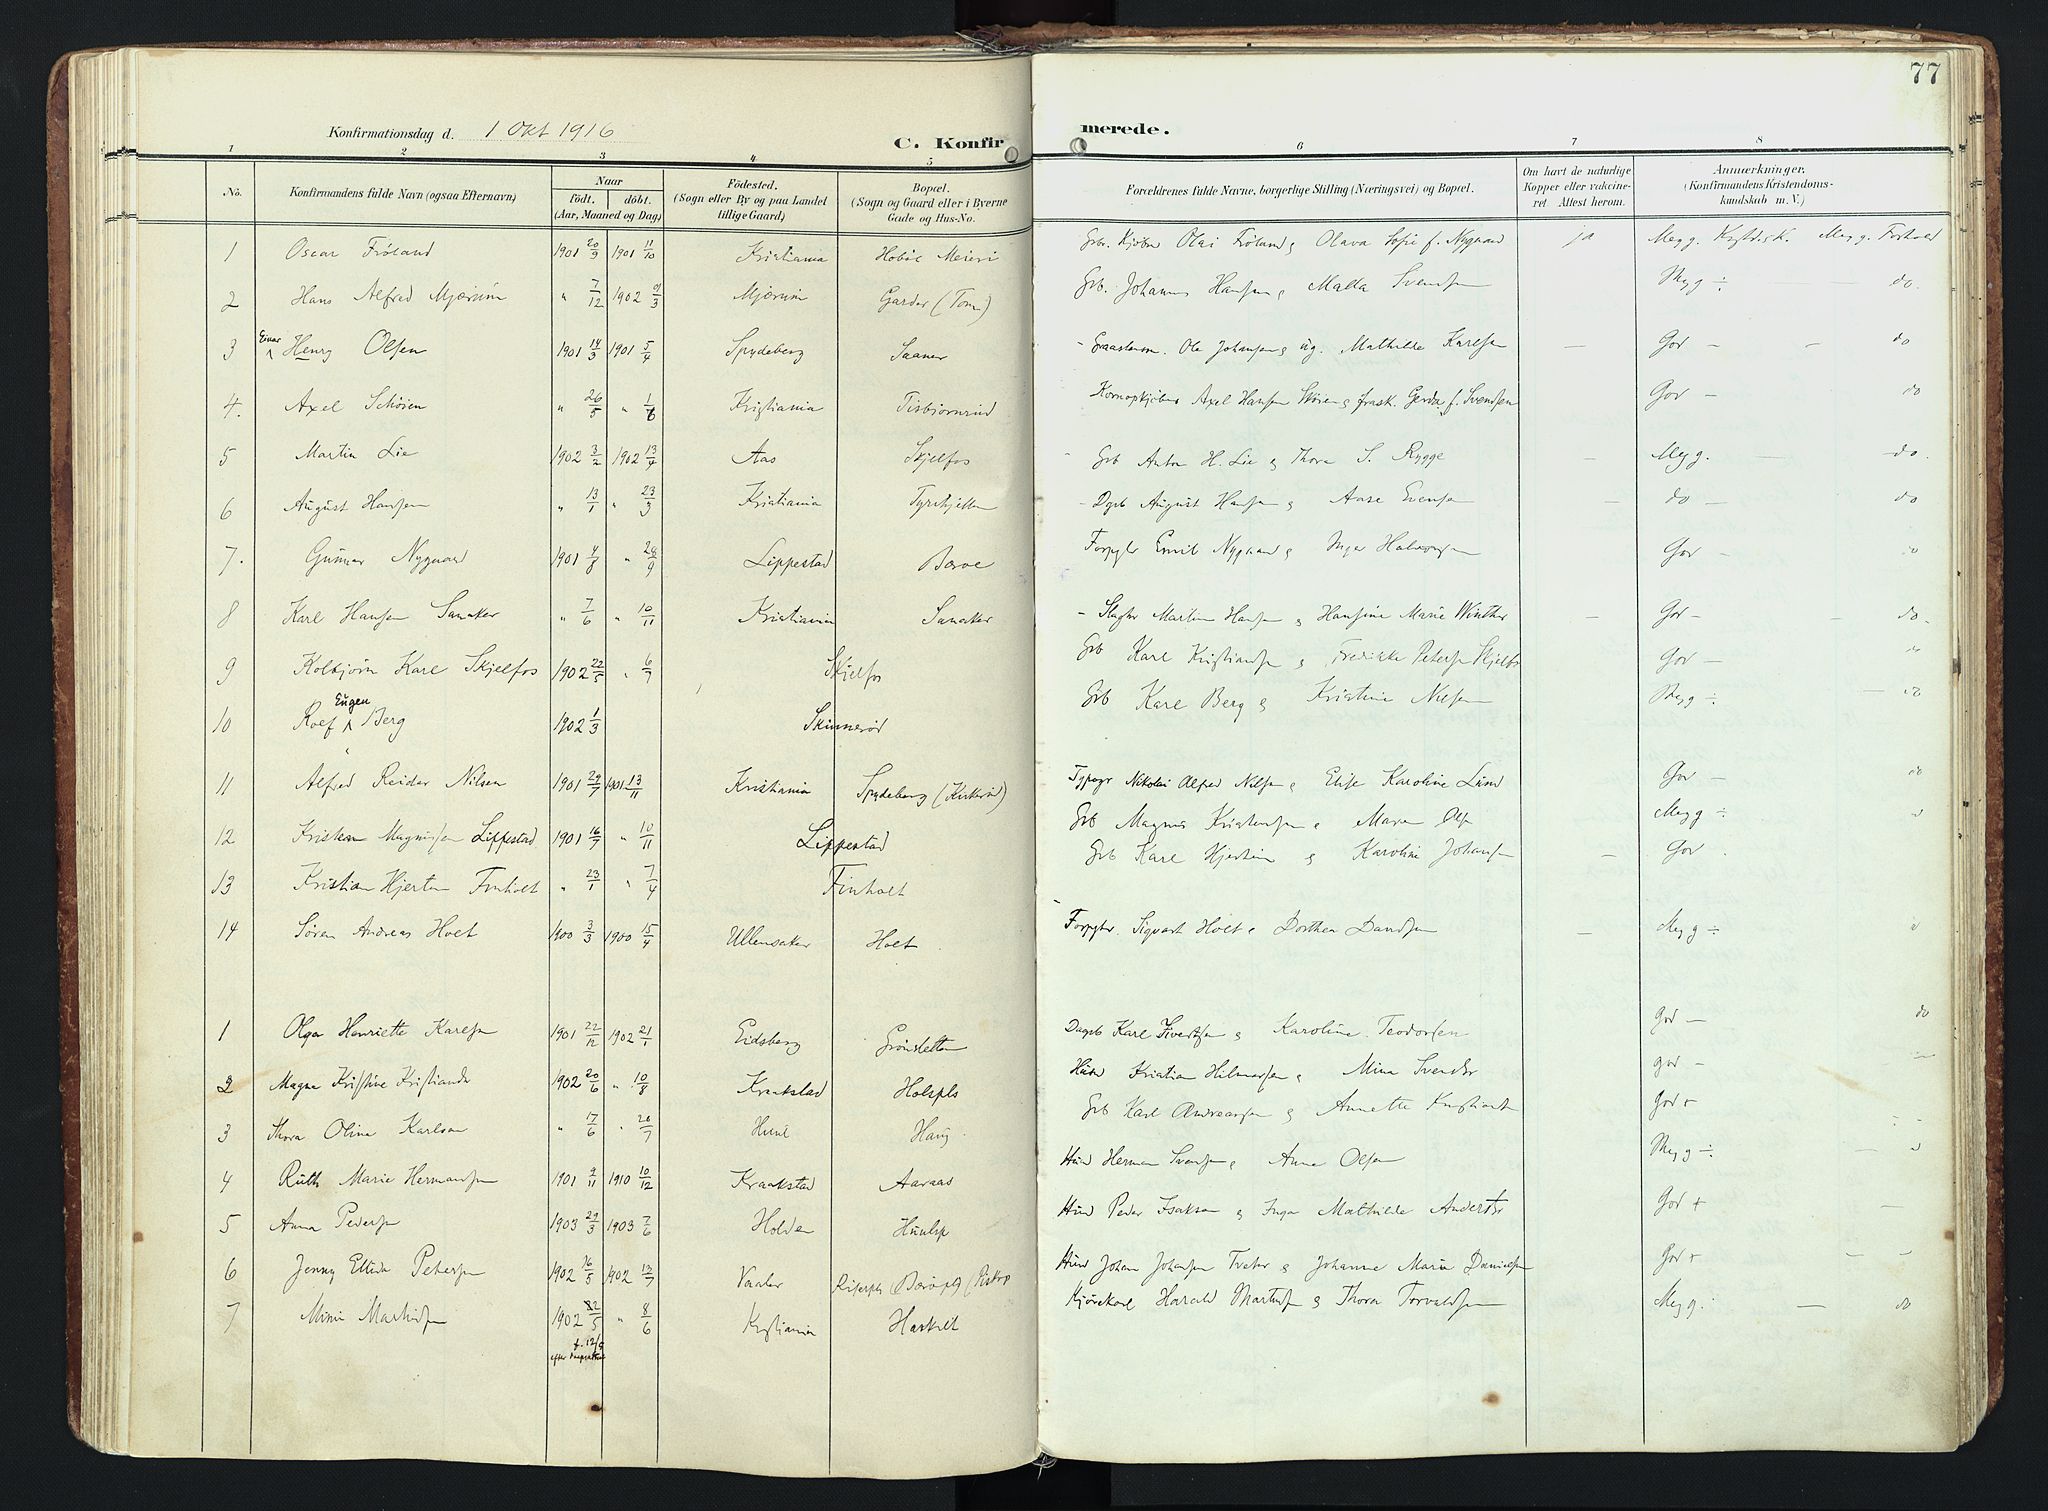 77
Konfirmationsdag d. 1 Okt 1916
C. Konfirmerede.
1 2 3 4 5 6 7 8
No. Konfirmandens fulde Navn (ogsaa Efternavn) Naar födt. döbt. (Aar, Maaned og Dag) Födested. (Sogn eller By og paa Landet tillige Gaard) Bopæl. (Sogn og Gaard eller i Byerne Gade og Hus-No. Forældrenes fulde Navne, borgerlige Stilling (Næringsvei) og Bopæl. Om havt de naturlige Kopper eller vaccineret Attest herom. Anmærkninger. (Konfirmandens Kristendomskundskab m. V.)
1 Oscar Frøland 1901 20/9 1901 11/10 Kristiania Hobøl Meieri Olai Frøland & Olava Sofie f. Nygaard ja Meg g. Meg g. Forhold
2 Hans Alfred Mjærum " 7/12 1902 Mjærum Garder (Tom) Grb. Johannes Hansen & Svendsen Meg g ÷ do.
3 Einar Henry Olsen 1901 14/3 1901 5/4 Spydeberg Saaner Ole Johansen & ug. Mathilde Karlsen — Gov — do
4. Axel Schøien " 26/5 " 1/6 Kristiania Tisbjørnrud Axel Hansen Skøien & frask. Gerda f. Svendsen Gov — do
5 Martin Lie 1902 3/2 1902 13/4 Aas Skjelfos Grb Anton H. Lie & Thora S. Rygge — Meg g. — do.
6 August Hansen " 13/1 " 23/3 Kristiania Dgrb August Hansen & Aase Evensen — do — do
7. Gunnar Nygaard 1901 4/8 " 29/9 Lippestad Borve Forpgtr Emil Nygaard & Inger Halvorsen Gov — do
8 Karl Hansen Sanaker " 7/6 " 10/11 Kristiania Sanaker Slagter Martin Hansen & Hansine Marie Winther — Gov — do.
9 Kolbjørn Karl Skjelfos 1902 22/5 " 6/7 Skjelfos Grb Karl Kristiansen & Fredikke Petersen Skjelfos Gov — do
10 Rolf Eugen Berg 1902 1/3 Skinnerød Grb Karl Berg & Kristine Nielsen Meg g ÷ — do
11 Alfred Reidar Nilsen 1901 29/7 1901 13/11 Kristiania Spydeberg (Kirkerud) Typogr Nikolai Alfred Nilsen & Elise Karoline Lund Gov — do
12 Kristian Magnussen Lippestad 1901 16/7 " 10/11 Lippestad Grb Magnus Kristensen & Maren Olsen Meg g ÷
13 Kristian Hjerten Finholt " 23/1 " 7/4 Finholt Grb Karl Hjerten & Karoline Johansen — Gov
14 Søren Andreas Holt 1900 3/3 1900 15/4 Ullensaker Holt Forpgtr. Sigvart Holt & Dorthea Davidsen — Meg g ÷
1 Olga Henriette Karlsen 1901 22/12 1902 21/1 Eidsberg Grønsletten Dagrb Karl Sivertsen & Karoline Teodorsen god — do
2 Magna Kristine Kristiansd 1902 20/6 " 10/8 Kraakstad Holspls Husm Kristian Hilmarsen & Mina Svendsdr gov —
3 Thora Olina Karlsen " 17/6 " 20/7 Haug Grb Karl Andreassen & Annette Kristians gov +
4 Ruth Marie Hermansen 1901 9/11 1910 10/12 Kraakstad Aaraas Husm Herman Svensen & Anna Olsen Meg g ÷
5 Anna Pedersen 1903 29/3 1903 7/6 Holden Husm Peder Isaksen & Inga Mathilde Andersdr Gov +
6 Jenny Ellida Petersen 1902 16/5 1902 13/7 Vaaler Husm Johan Johansen Tveter & Johanne Marie Danielsen Gov +
7 Mimi Martinsen 1902 22/5 " 8/6 Kristiania Haslet Kjørekarl Harald Martinsen & Thora Torvaldsen Meg g. — do
f. 12/5
efter